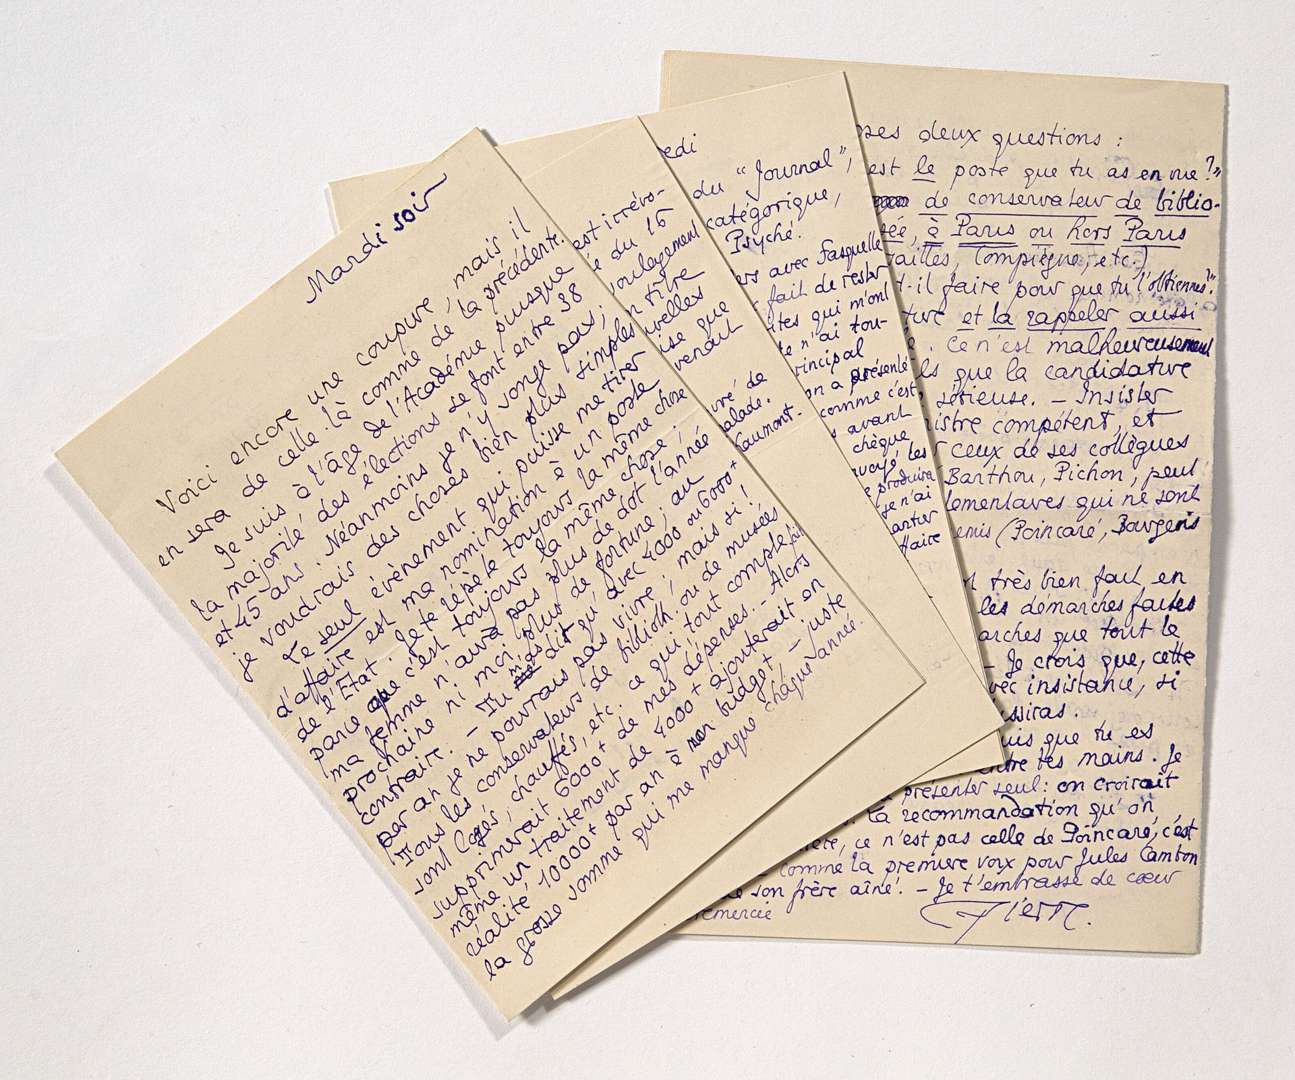 Mardi soir
Voici encore une coupure, mais il
en sera de celle-là comme de la précédente.
Je suis à l'âge de l'Académie puisque
la majorité des élections se font entre 38
et 45 ans. Néanmoins je n'y songe pas;
je voudrais des choses bien plus simples
Le seul évènement qui puisse me tirer
d'affaire est ma nomination à un poste
de l'Etat. Je te répète toujours la même chose
parce que c'est toujours la même chose;
ma femme n'aura pas plus de dot l'année
prochaine ni moi plus de fortune; au
contraire. - Tu m'as dit qu'avec 4000 ou 6000+
par an je ne pourrais pas vivre; mais si!
Tous les conservateurs de biblioth. ou de musées
sont logés, chauffés, etc. ce qui, tout compte fait
supprimerait 6000+ de mes dépenses. - Alors
même un traitement de 4000+ ajouterait en
réalité 10000+ par an à mon budget, - juste
la grosse somme qui me manque chaque année.
est irrévo-
du 16
soulagement
titre
nouvelles
que
venait
de
malade.
Gaumont.
edi
du "Journal",
catégorique,
Psyché.
avec Fasquelle
fait de rester
qui m'ont
n'ai tou-
principal
on a présenté
comme c'est
avant
chèque
les
produira
je n'ai
affaire
ses deux questions:
est le poste que tu as en vue?"
de conservateur de biblio-
à Paris ou hors Paris
Compiègne, etc.)
t-il faire pour que tu l'obtiennes".
et la rappeler aussi
Ce n'est malheureusement
que la candidature
sérieuse. - Insister
ministre compétent, et
ceux de ses collègues
Barthou, Pichon, peut
qui ne sont
(Poincaré, Bourgeois
très bien fait en
les démarches faites
que tout le
- Je crois que, cette
avec insistance, si
réussiras.
que tu es
entre tes mains. Je
présenter seul: on croirait
la recommandation qu'on
ce n'est pas celle de Poincaré, c'est
comme la première voix pour Jules Cambon
de son frère aîné. - Je t'embrasse de cœur
remercie
Pierre.